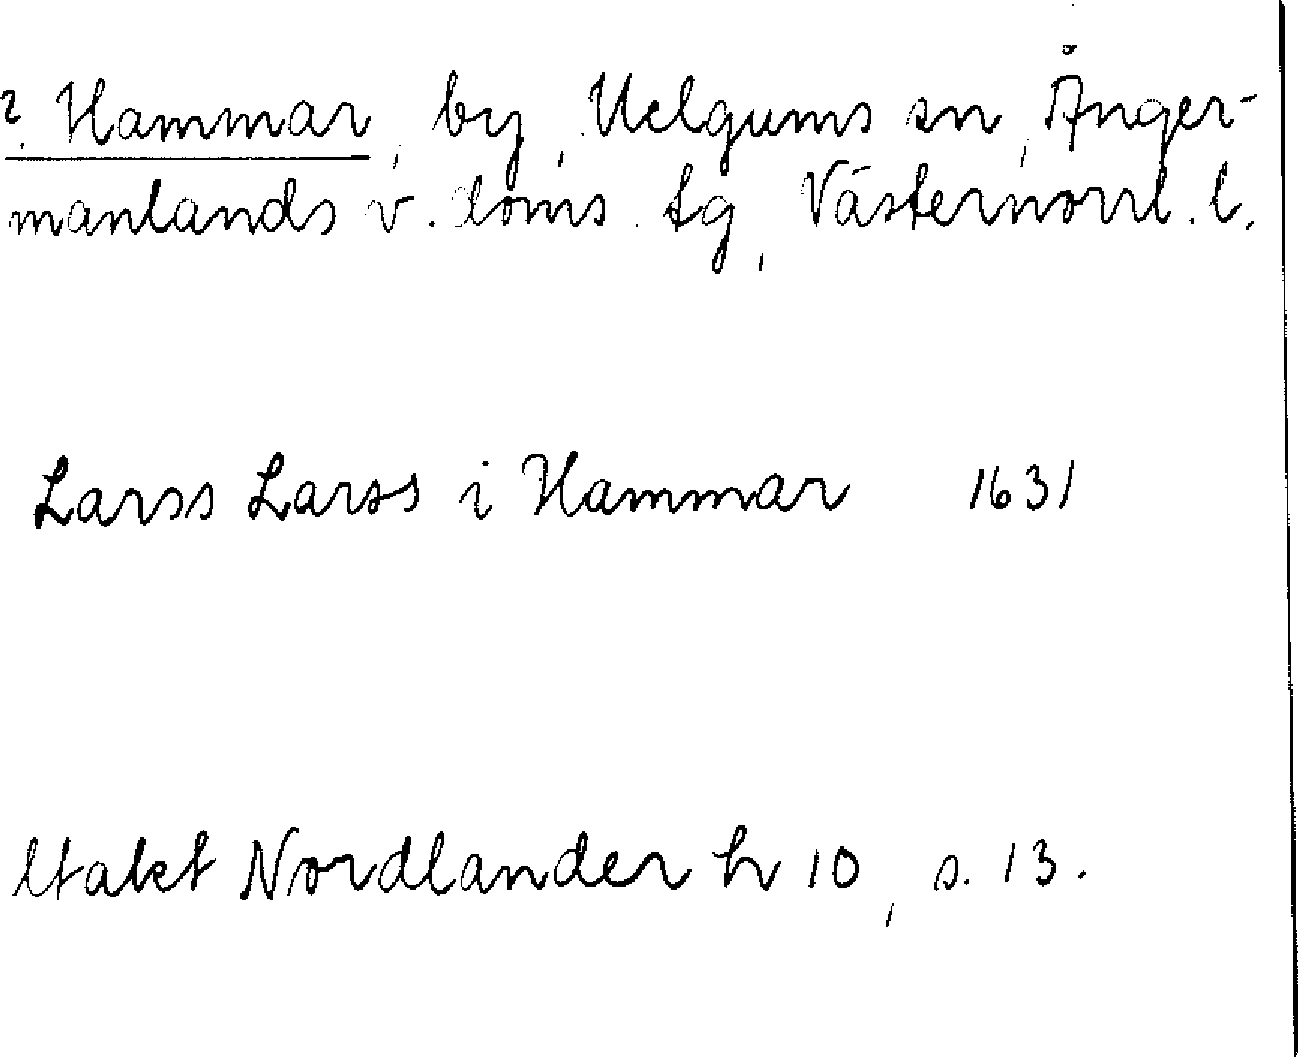 ? Hammar, by, Helgums sn, Ånger-
manlands v. doms. tg, Västernorrl. l.
Larss Larss i Hammar 1631
Utakt Nordlander h 10, s. 13.